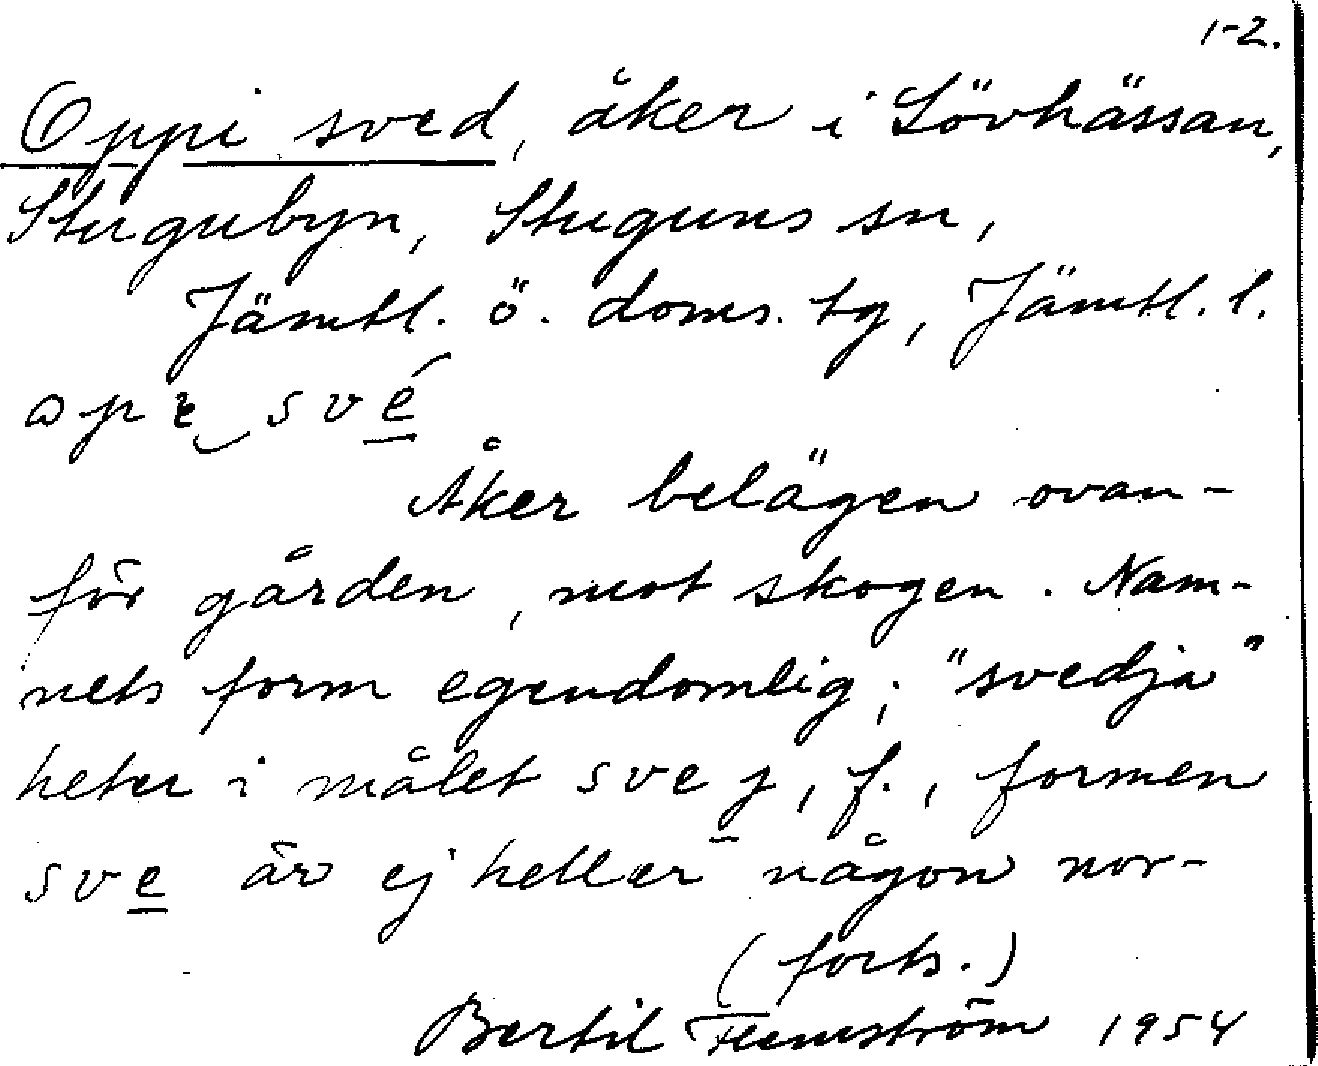 1-2.
Oppi sved, åker i Lövhässan,
Stugubyn, Stuguns sn,
Jämtl. ö. doms. tg, Jämtl. l.
své
Åker belägen ovan-
för gården, mot skogen. Nam-
nets form egendomlig; "svedja"
heter i målet svej, f., formen
sve är ej heller någon nor-
(forts.)
Bertil Flemström 1954